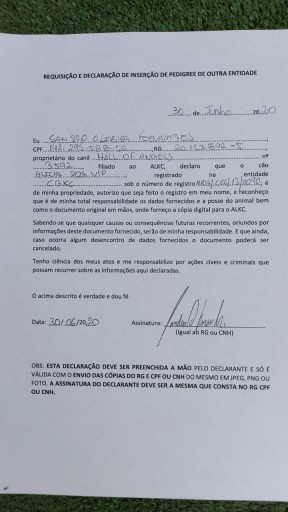 REQUISIÇÃO E DECLARAÇÃO DE INSERÇÃO DE PEDIGREE DE OUTRA ENTIDADE
30 de Junho 2020
Eu SANDRO OLIVEIRA
CPF RG
proprietário do canil HALL OF nº
3592 filiado ao ALKC, declaro que o cão
DOG VIP registrado na entidade
CBKC sob o número de registro é
de minha propriedade, autorizo que seja feito o registro em meu nome, e reconheço
que é de minha total responsabilidade os dados fornecidos e a posse do animal bem
como o documento original em mãos, onde forneço a cópia digital para o ALKC.
Sabendo-se que quaisquer causas ou consequências futuras recorrentes, oriundos por
informações deste documento fornecido, serão de minha responsabilidade. E que ainda,
caso ocorra algum desencontro de dados fornecidos o documento poderá ser
cancelado.
Tenho ciência dos meus atos e me responsabilizo por ações civeis e criminais que
possam recorrer as informações aqui declaradas.
O acima descrito é verdade e dou fé
Data: 30/06/2020 Assinatura:
(Igual ao RG ou CNH)
OBS: ESTA DECLARAÇÃO DEVE SER PREENCHIDA A MÃO PELO DECLARANTE E SÓ É
VÁLIDA COM O ENVIO DAS CÓPIAS DO RG E CPF OU CNH DO MESMO EM JPEG, PNG OU
FOTO. A ASSINATURA DO DECLARANTE DEVE SER A MESMA QUE CONSTA NO RG CPF
OU CNH.